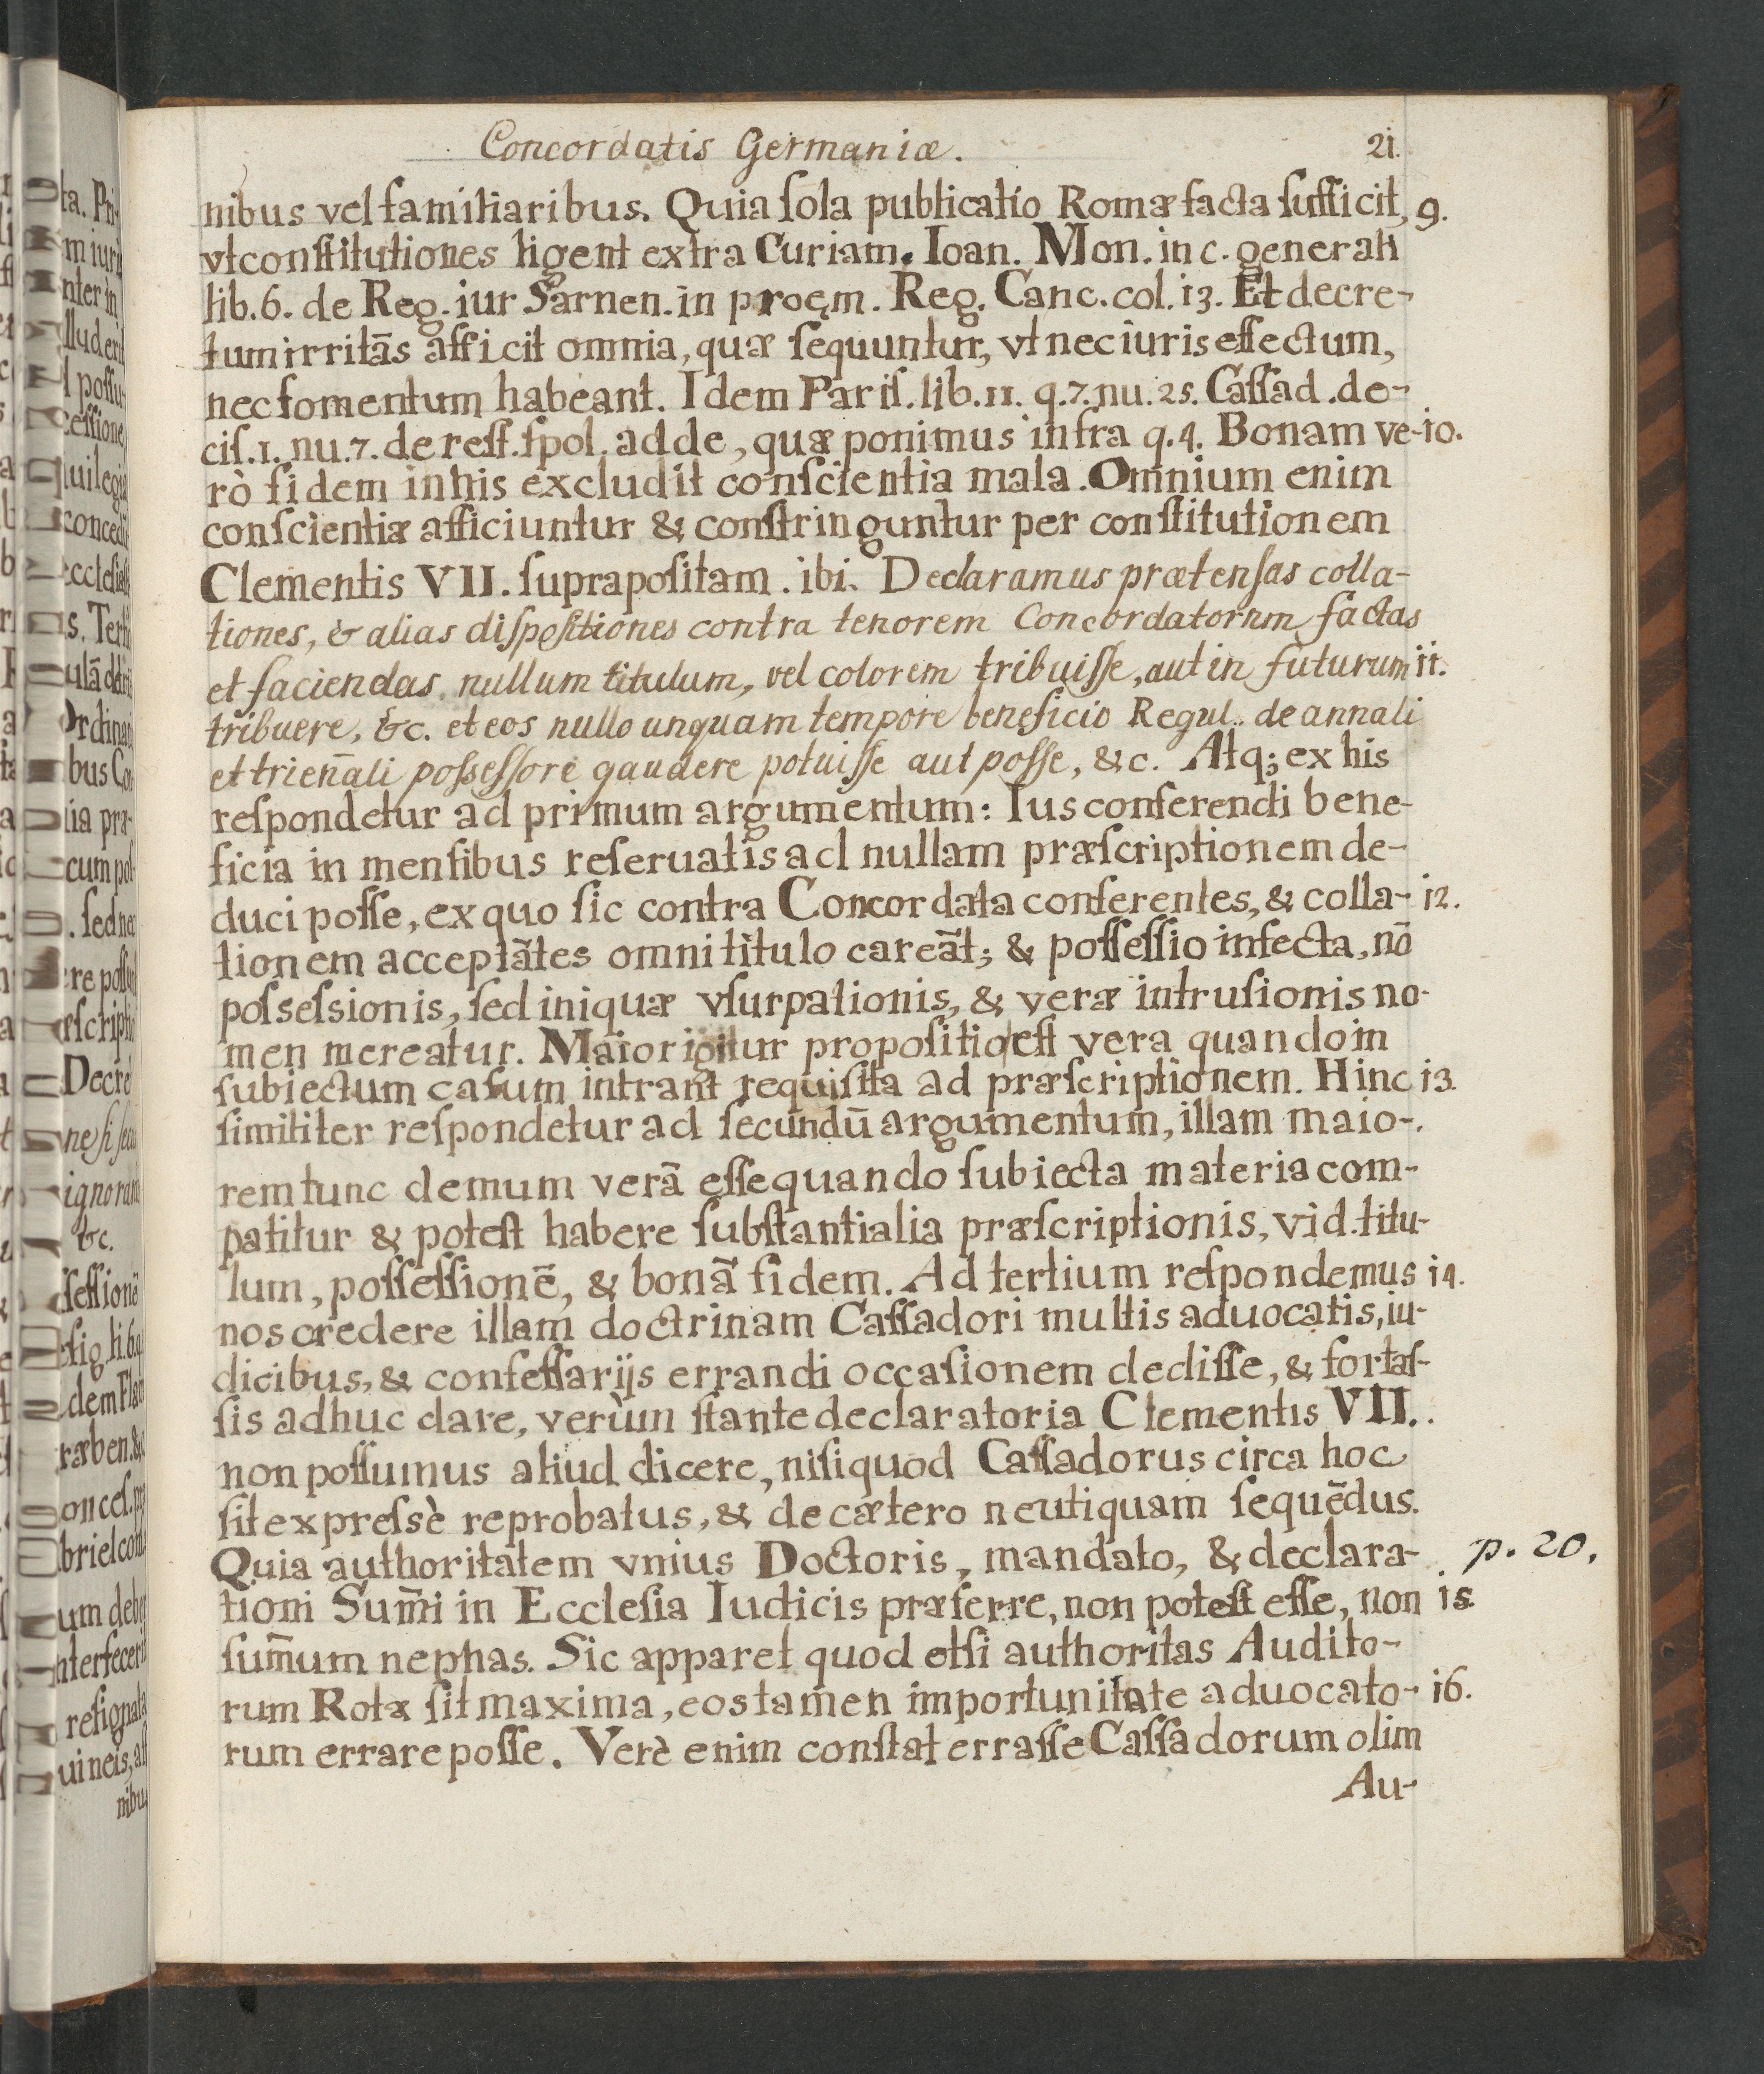 Concordatis Germaniæ. 21.
nibus vel familiaribus. Quia ſola publicatio Romæ facta ſufficit, 9.
vt conſtitutiones ligent extra Curiam. Ioan. Mon. in c. generali
lib. 6. de Reg. iur Sarnen. in proęm. Reg. Canc. col. 13. Et decre-
tum irritãs afficit omnia, quæ ſequuntur, vt nec iuris effectum,
nec fomentum habeant. Idem Pariſ. lib. 11. q. 7. nu. 25. Caſſad. de-
ciſ. 1. nu. 7. de reſt. ſpol. adde, quæ ponimus infra q. 4. Bonam ve- 10.
rò fidem in his excludit conſcientia mala. Omnium enim
conſcientiæ afficiuntur & conſtringuntur per conſtitutionem
Clementis VII. ſuprapoſitam. ibi. Declaramus prætenſas colla-
tiones, & alias diſpoſitiones contra tenorem Concordatorum factas
et faciendas nullum titulum, vel colorem tribuiſſe, aut in futurum 11.
tribuere, &c. et eos nullo unquam tempore beneficio Regul. de annali
et trien̄ali poſseſſore gaudere potuiſſe aut poſſe, &c. Atq; ex his
reſpondetur ad primum argumentum: Ius conferendi bene-
ficia in menſibus reſeruatis ad nullam præſcriptionem de-
duci poſſe, ex quo ſic contra Concordata conferentes, & colla- 12.
tionem acceptãtes omni titulo careãt; & poſſeſſio infecta, nõ
poſseſsionis, ſed iniquæ vſurpationis, & veræ intruſionis no-
men mereatur. Maior igitur propoſitio eſt vera quando in
subiectum caſum intrant requiſita ad præſcriptionem. Hinc 13.
ſimiliter reſpondetur ad ſecundũ argumentum, illam maio-.
rem tunc demum verã eſſe quando ſubiecta materia com-
patitur & poteſt habere ſubſtantialia præſcriptionis, vid. titu-
lum, poſſeſſionẽ, & bonã fidem. Ad tertium reſpondemus 14.
nos credere illam doctrinam Caſſadori multis aduocatis, iu-
dicibus, & confeſſarijs errandi occaſionem dediſſe, & fortaſ-
ſis adhuc dare, verùm ſtante declaratoria Clementis VII..
non poſſumus aliud dicere, niſi quod Caſſadorus circa hoc
ſit expreſsè reprobatus, & de cætero neutiquam ſequẽdus.
Quia authoritatem vnius Doctoris, mandato, & declara- p. 20,
tioni Sum̄i in Ecclesia Iudicis præferre, non poteſt eſſe, non 15.
ſum̄um nephas. Sic apparet quod etſi authoritas Audito-
rum Rotæ ſit maxima, eos tamen importunitate aduocato- 16.
rum errare poſſe. Verè enim conſtat erraſſe Caſſadorum olim
Au-